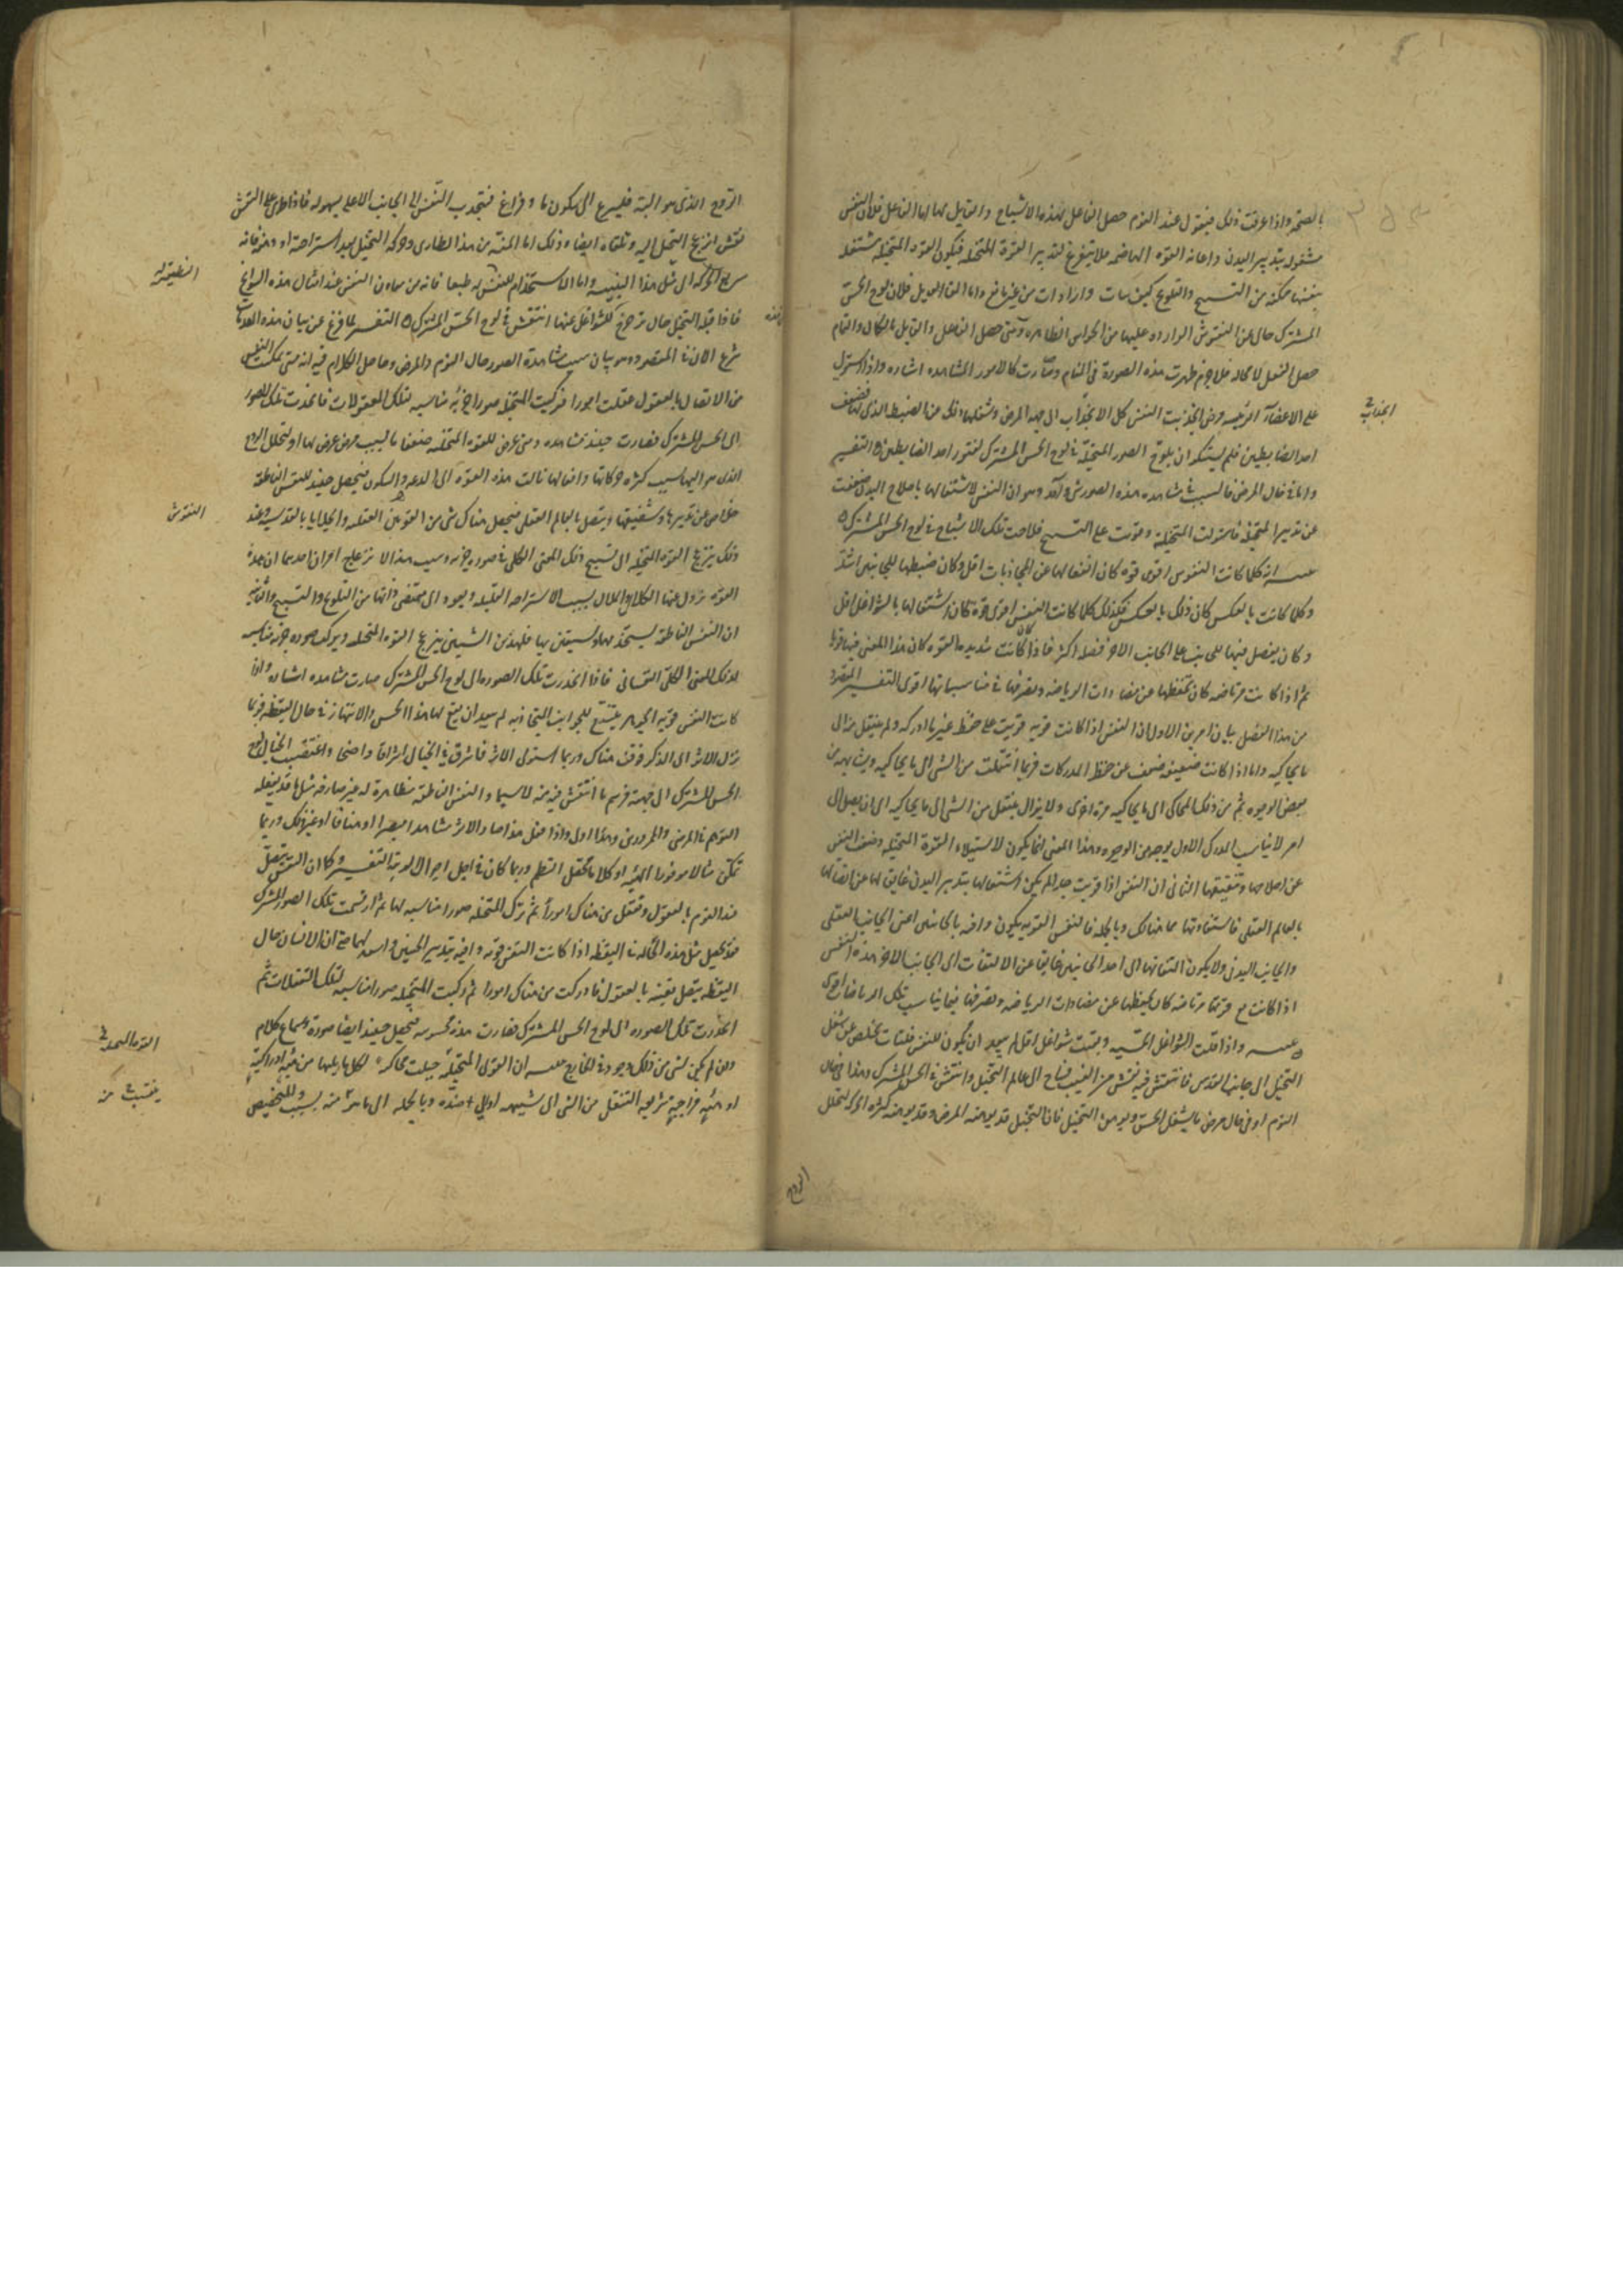 بالصحة واذا عرفت ذلك فنقول عند النوم حصل الفاعل لهذه الاشباح والقابل لها اما الفاعل فلان النفس
مشغولة بتدبير البدن واعانة القوة الهاضمة فلا يتفرغ لتدبير القوة المتخيلة فيكون القوة المتخيلة مستقلة
بنفسها متمكنة من التشبيح والتلويح كيف شاءت وارادت من غير مانع واما القابل فلان لوح الحس
المشترك خال عن النقوش الواردة عليها من الحواس الظاهرة ومتى حصل الفاعل والقابل بالكمال والتمام
حصل الفعل لا محالة فلا جرم ظهرت هذه الصورة فى المنام وصارت كالامور المشاهدة اشارة واذا استولى
على الاعضاء الرئيسة مرض انجذبت النفس كل الانجذاب الى جهة المرض وشغلها ذلك عن الضبط الذى لها فضعف
احد الضابطين فلم يستنكر ان يلوح الصور المتخيلة فى لوح الحس المشترك لفتور احد الضابطين التفسير
واما فى حال المرض فالسبب فى مشاهدة هذه الصور شئ واحد وهو ان النفس لاشتغالها باصلاح البدن ضعفت
عن تدبير المتخيلة فاستولت المتخيلة وقويت على التشبيح فلاحت تلك الاشباح فى لوح الحس المشترك
انه كلما كانت النفوس اقوى قوة كان انفعالها عن المحاذيات اقل وكان ضبطها للجانبين اشد
وكلما كانت بالعكس كان ذلك بالعكس فكذلك كلما كانت النفس اقوى قوة كان اشتغالها بالشواغل اقل
وكان يفضل فيها للجانب الاخر فضلة اكثر فاذا كانت شديدة القوة كان هذا المعنى فيها قويا
ثم اذا كانت مرتاضة كان تحفظها عن مضادات الرياضة وتصرفها فى مناسباتها اقوى التفسير المقصود
من هذا الفصل بيان امرين الاول ان النفس اذا كانت قوية قويت على حفظ عين ما ادركه ولم ينتقل منه الى
ما يحاكيه واما اذا كانت ضعيفة ضعفت عن حفظ المدركات فربما انتقلت من الشئ الى ما يحاكيه ويشابهه من
بعض الوجوه ثم من ذلك المحاكى الى ما يحاكيه مرة اخرى ولا يزال ينتقل من الشئ الى ما يحاكيه الى ان يصل الى
امر لا يناسب المدرك الاول بوجه من الوجوه وهذا المعنى انما يكون لاستيلاء القوة المتخيلة وضعف النفس
عن اصلاحها وتثقيفها الثانى ان النفس اذا قويت جدا لم يكن اشتغالها بتدبير البدن عايق لها عن اتصالها
بالعالم العقلى فاستفادتها مما هنالك وبالجملة فالنفس القوية يكون وافية بالجانبين اعنى الجانب العقلى
والجانب البدنى ولا يكون التفاتها الى احد الجانبين عايقا عن الالتفات الى الجانب الاخر هذه النفس
اذا كانت مع قوتها مرتاضة كان تحفظها عن مضادات الرياضة وتصرفها فيما يناسب تلك الرياضة اقوى
واذا قلت الشواغل الحسية وبقيت شواغل اقل لم يبعد ان يكون للنفس فلتات تخلص عن شغل
التخيل الى جانب القدس فانتقش فيه نقش من الغيب فساح الى عالم التخيل وانتقش فى الحس المشترك وهذا فى حال
النوم او فى حال مرض ما يشغل الحس ويوهن التخيل فان التخيل قد يوهنه المرض وقد يوهنه كثرة الحركة لتحلل
الروح
انجذاب
الروح الذى هو آلته فيسرع الى سكون ما وفراغ فتنجذب النفس الى الجانب الاعلى بسهولة فاذا طرا على النفس
نقش انزعج التخيل اليه وتلقاه ايضا وذلك اما لمنبه من هذا الطارى وحركة التخيل بعد استراحته او وهنه فانه
سريع الحركة الى مثل هذا التنبيه واما لاستخدام النفس له طبعا فانه من معاون النفس عند امثال هذه السوانح
فاذا قبله التخيل حال تزحزح الشواغل عنها انتقش فى لوح الحس المشترك التفسير لما فرغ عن بيان هذه المقدمات
شرع الان فى المقصود وهو بيان سبب مشاهدة الصور حال النوم والمرض وحاصل الكلام فيه انه متى تمكنت النفس
من الاتصال بالعقول عقلت امورا فركبت المتخيلة صورا جزئية مناسبة لتلك المعقولات فانحدرت تلك الصور
الى الحس المشترك فصارت حينئذ مشاهدة ومتى عرض للقوة المتخيلة ضعف اما بسبب مرض عرض لها او لتحلل الروح
الذى هو آلتها بسبب كثرة حركاتها وافعالها مالت هذه القوة الى الدعة والسكون فيحصل حينئذ للنفس الناطقة
خلاص عن تدبيرها وتثقيفها ويتصل بالعالم العقلى فيحصل هناك شئ من النقوش العقلية والجلايا القدسية وعند
ذلك ينزعج القوة المتخيلة الى تشبيح ذلك المعنى الكلى فى صورة جزئية وسبب هذا الانزعاج امران احدهما ان هذه
القوة تزول عنها الكلال والملال بسبب الاستراحة القليلة ويعود الى مقتضى ذاتها من التلويح والتشبيح والثانى
ان النفس الناطقة يستخدمها ويستعين بها فلهذين الشيئين ينزعج القوة المتخيلة ويركب صورة جزئية مناسبة
لذلك المعنى الكلى النفسانى فاذا انحدرت تلك الصورة الى لوح الحس المشترك صارت مشاهدة اشارة واذا
كانت النفس قوية الجوهر يتسع للجوانب المتجاذبة لم يبعد ان يقع لها هذا الخلس والانتهاز فى حال اليقظة فربما
نزل الاثر الى الذكر فوقف هناك وربما استولى الاثر فاشرق فى الخيال اشراقا واضحا واغتصب الخيال لوح
الحس المشترك الى جهته فرسم ما انتقش فيه منه لا سيما والنفس الناطقة مظاهرة له غير صارفة مثل ما قد يفعله
التوهم فى المرضى والممرورين وهذا اولى واذا فعل هذا صار الاثر مشاهدا مبصرا او هتافا او غير ذلك وربما
تمكن مثالا موفور الهيئة او كلاما محصل النظم وربما كان فى اجل احوال الزينة التفسير وكما ان النفس يتصل
عند النوم بالعقول وتنتقل من هناك امورا ثم تركب المتخيلة صورا مناسبة لها ثم ارتسمت تلك الصور فى الحس المشترك
فقد يحصل مثل هذه الحالة فى اليقظة اذا كانت النفس قوية وافية بتدبير الجنبين واسعة لهما حتى ان الانسان حال
اليقظة يتصل نفسه بالعقول فادركت من هناك امورا ثم ركبت المتخيلة صورا مناسبة لتلك التعقلات ثم
انحدرت تلك الصورة الى لوح الحس المشترك فصارت هذه محسوسة فيحصل حينئذ ايضا صورة وسماع كلام
وان لم يكن لشئ من ذلك وجود فى الخارج ان القوى المتخيلة جبلت محاكية لكل ما يليها من هيئة ادراكية
او هيئة مزاجية سريعة التنقل من الشئ الى شبيهه او الى ضده وبالجملة الى ما هو منه بسبب وللتخصيص
النقوش